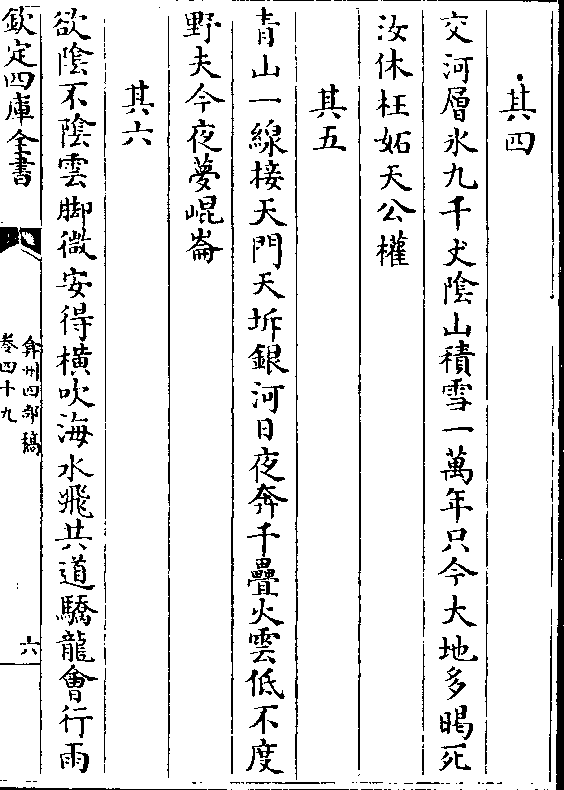 其四
交河層氷九千丈陰山積雪一萬年只今大地多暍死
汝休枉妬天公權
其五
青山一線接天門天坼銀河日夜奔千疊火雲低不度
野夫今夜夢崐崙
其六
欲陰不陰雲脚微安得横吹海水飛共道驕龍會行雨
欽定四庫全書
弇州四部稿
卷四十九
六